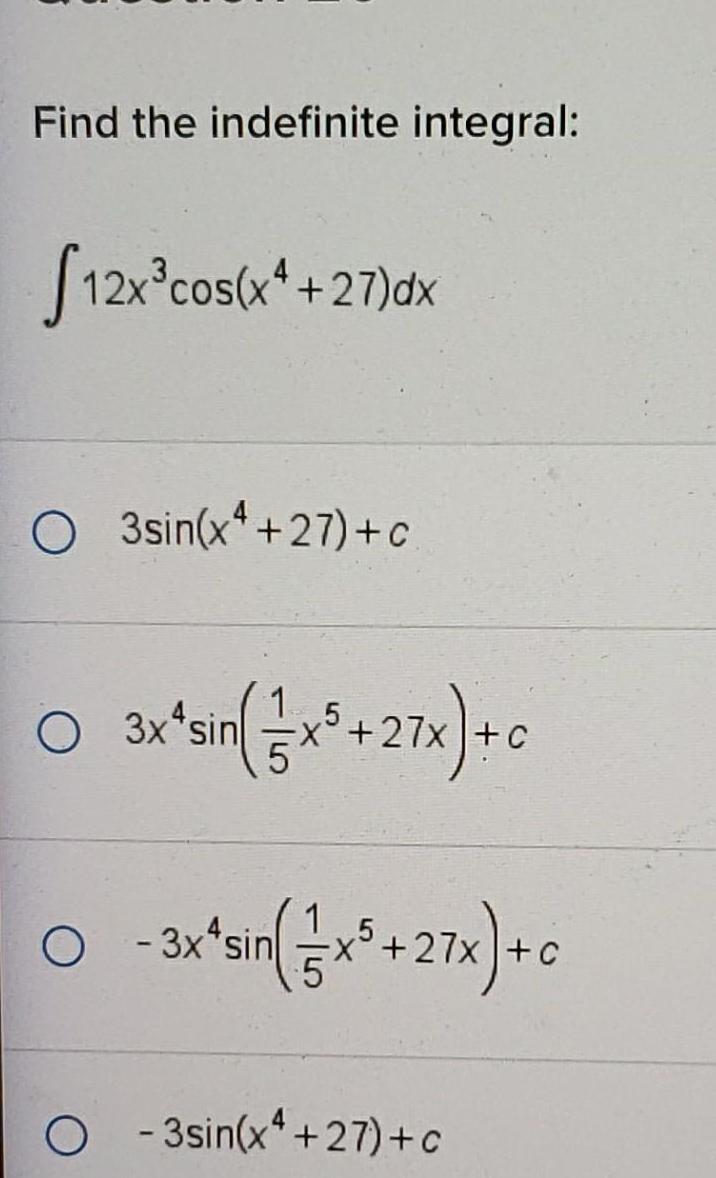 Find the indefinite integral:
∫12x³cos(x⁴+27)dx
3sin(x⁴+27)+c
3x⁴sin(1/5x⁵+27x)+c
-3x⁴sin(1/5x⁵+27x)+c
-3sin(x⁴+27)+c